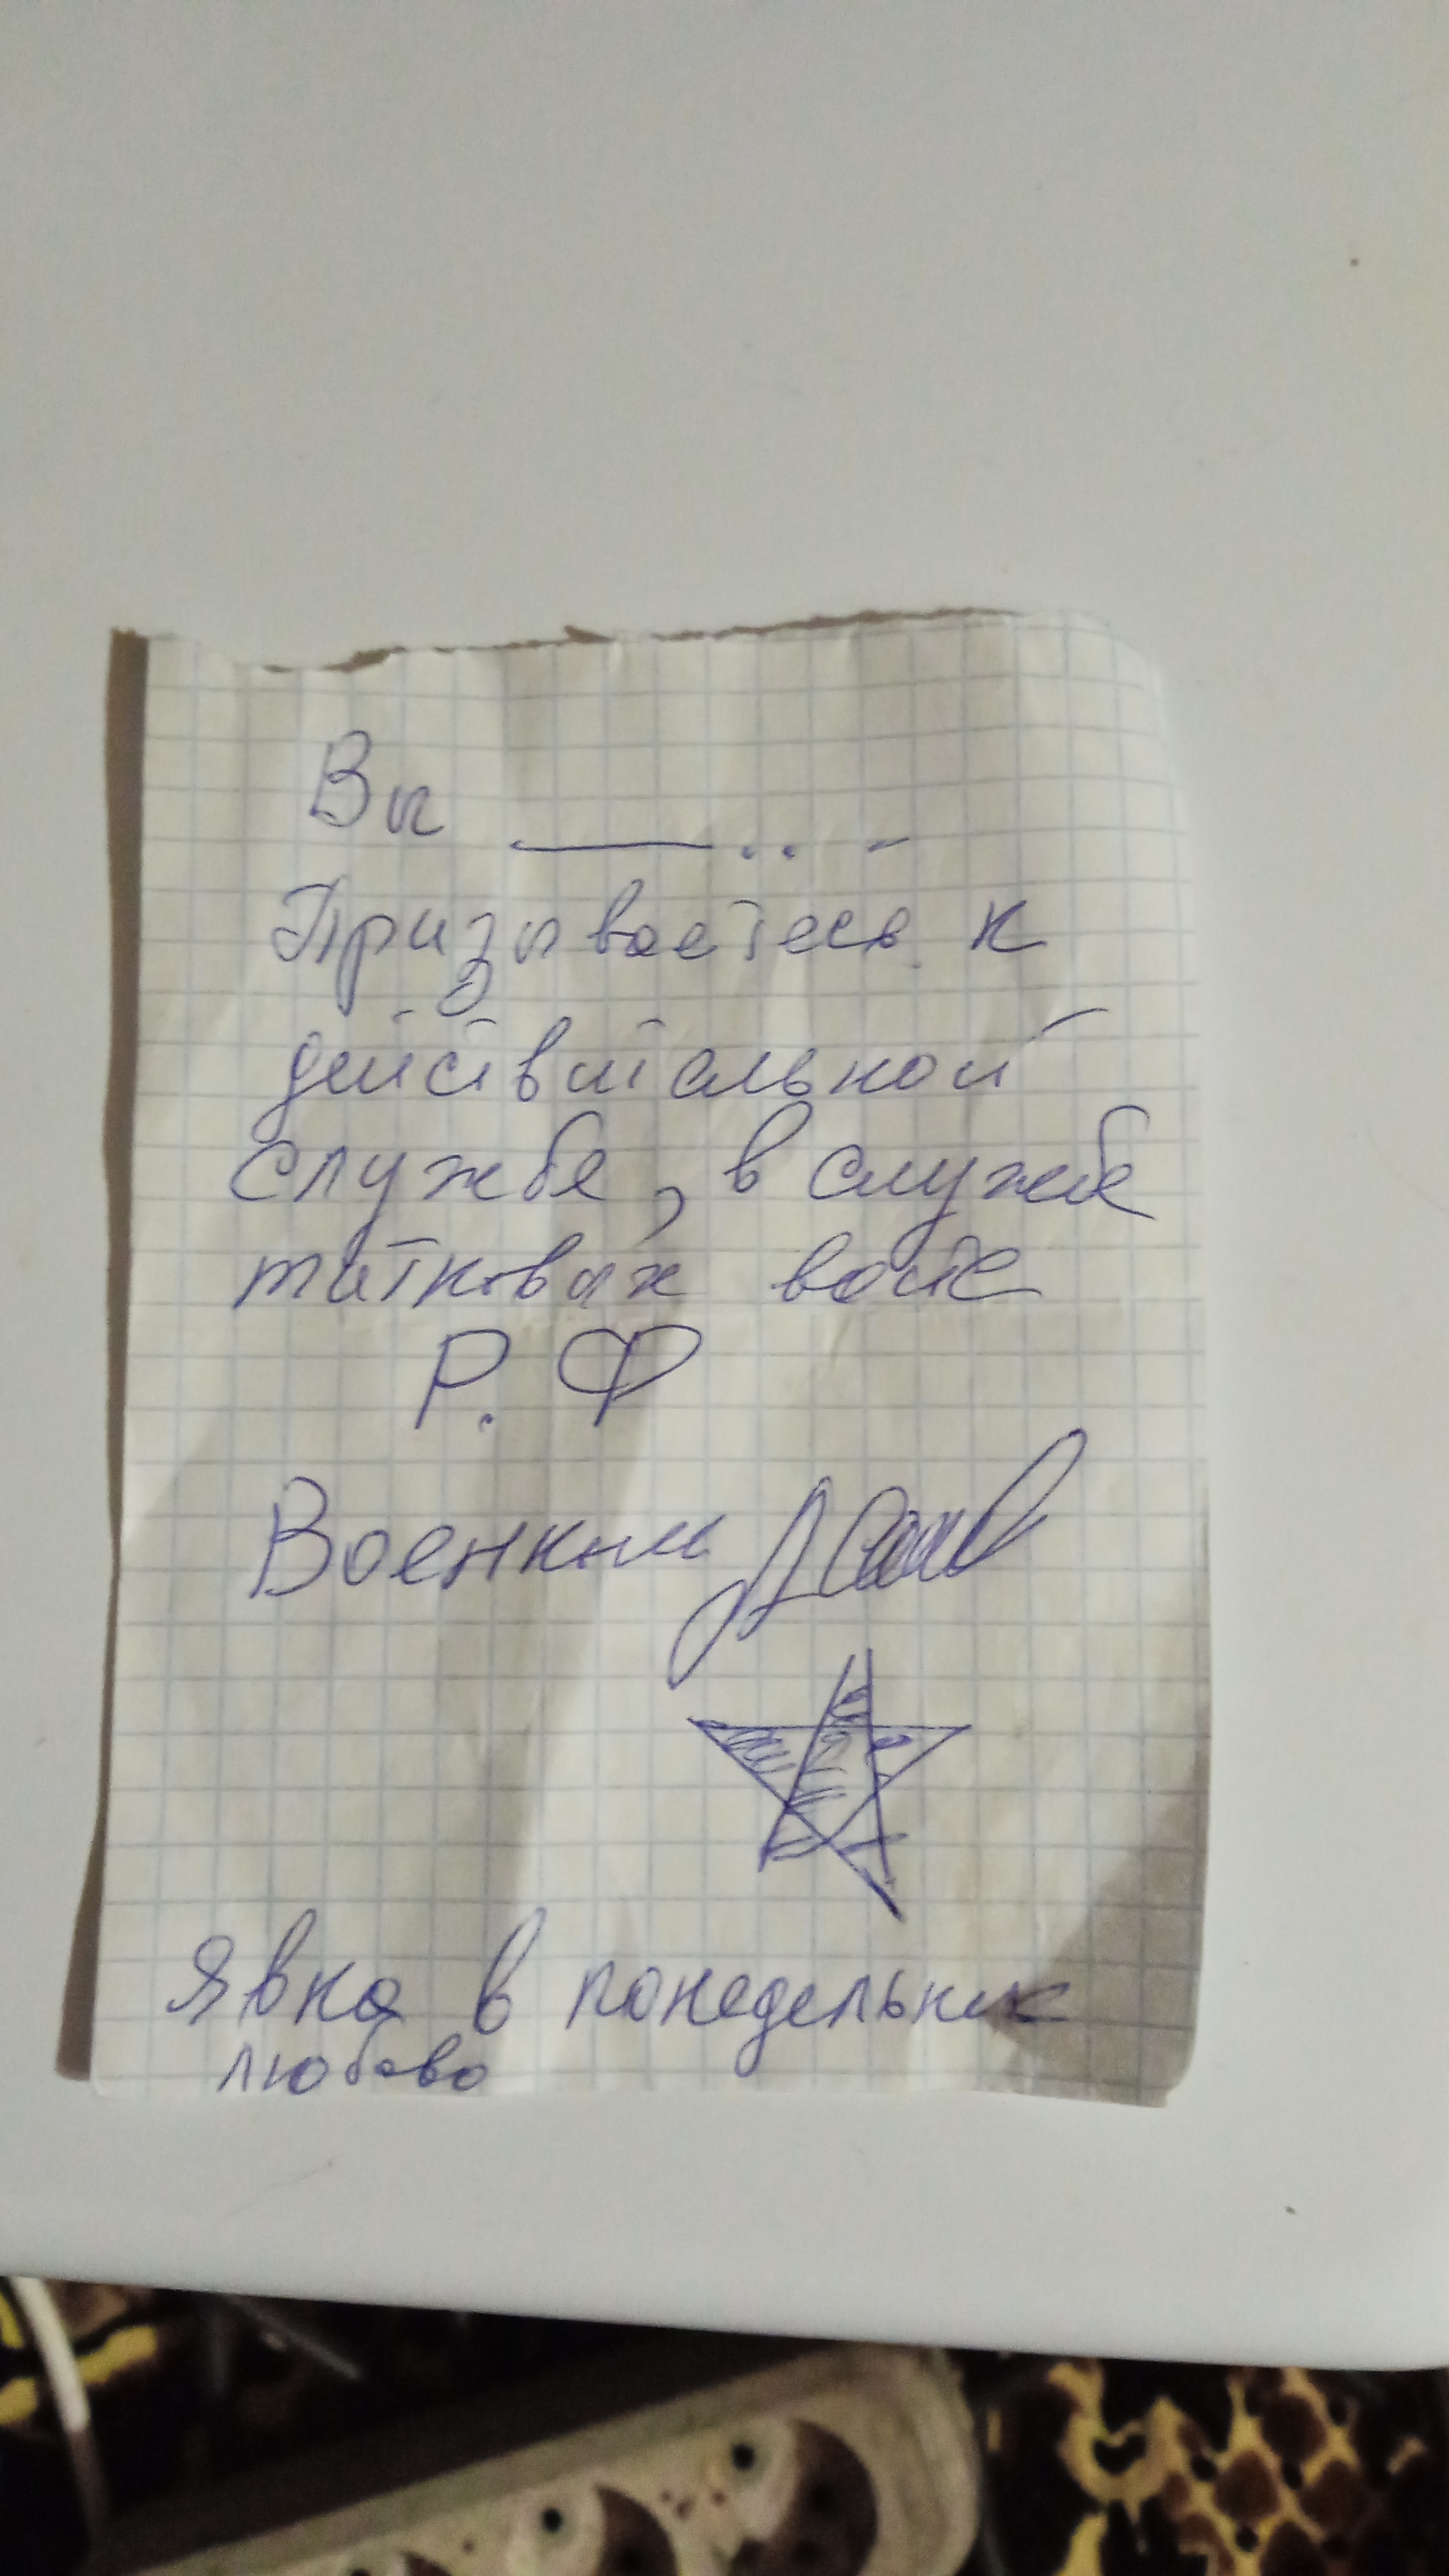 Вы
Призываетесь к
действительной
службе, в службе
татковых войс
Р. Ф
Военком
Явка в понедельник
любово